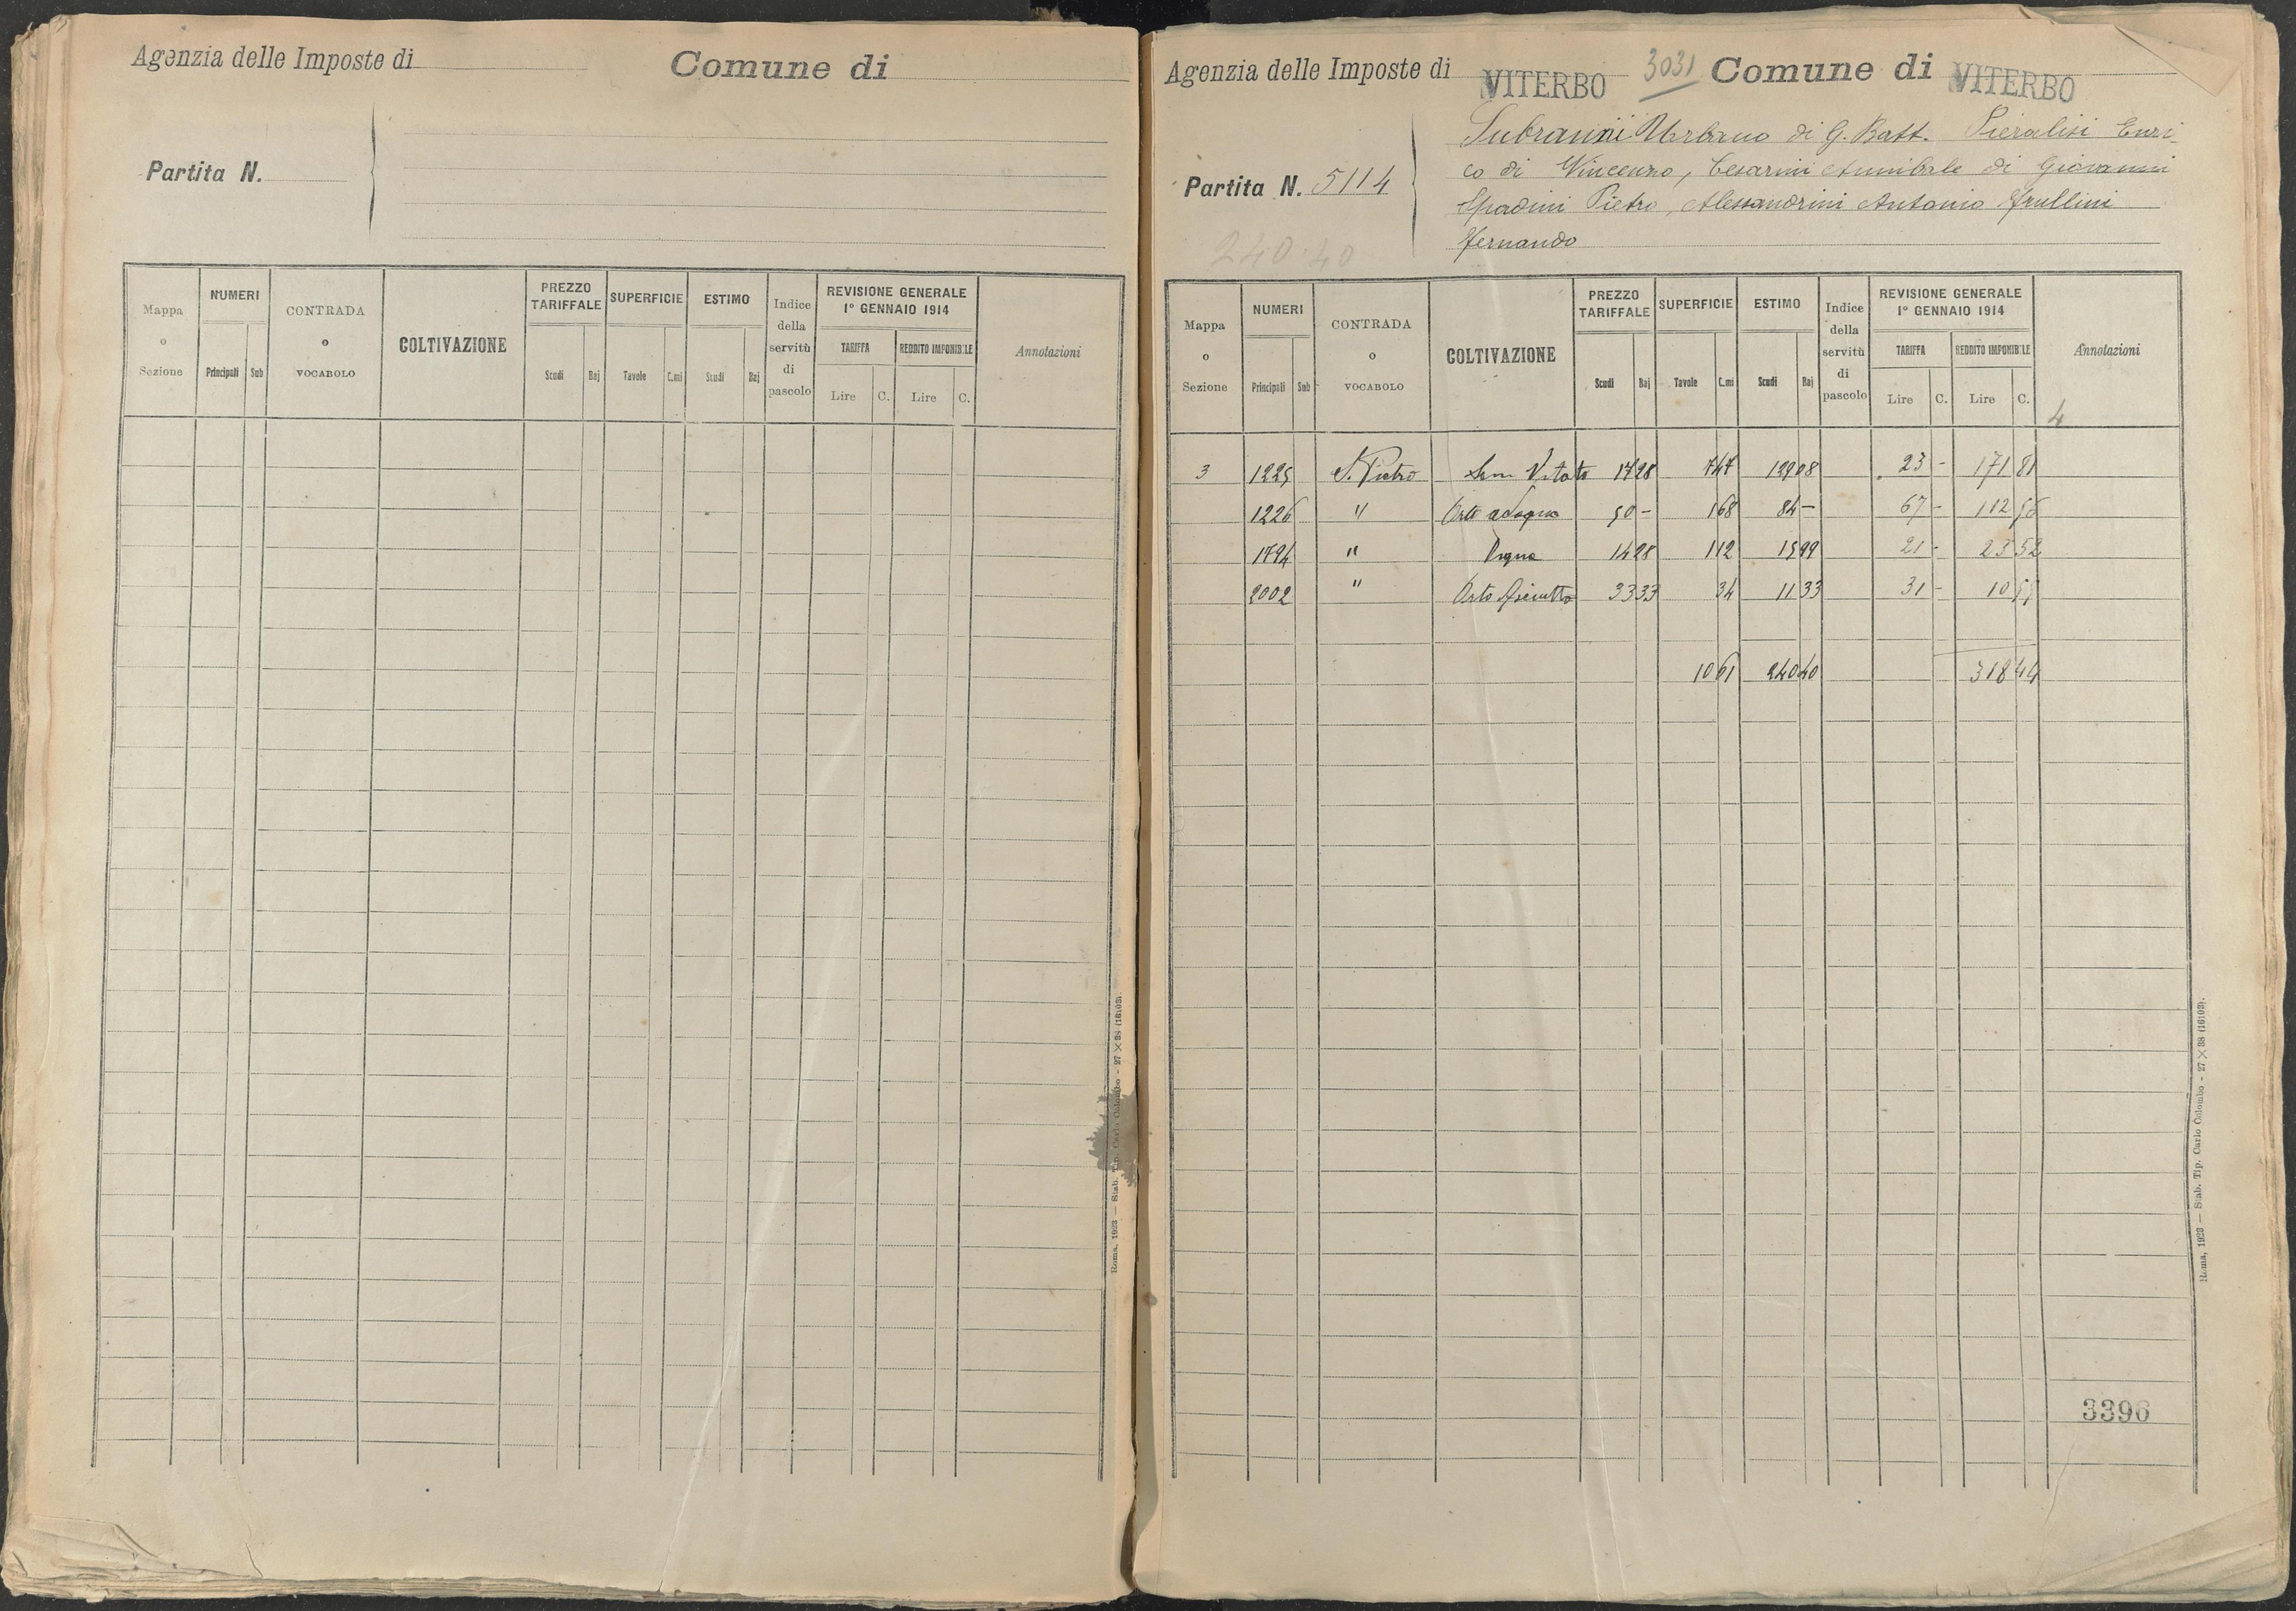 Agenzia delle Imposte di
Comune di
Partita N.
Mappa o Sezione
NUMERI
Principali Sub
CONTRADA o VOCABOLO
COLTIVAZIONE
PREZZO TARIFFALE
Scudi Baj
SUPERFICIE
Tavole C.mi
ESTIMO
Scudi Baj
Indice della servitù di pascolo
REVISIONE GENERALE
1° GENNAIO 1914
TARIFFA
Lire C.
REDDITO IMPONIBILE
Lire C.
Annotazioni
Roma, 1923 — Stab. Tip. Carlo Colombo - 27 × 38 (16103).
Agenzia delle Imposte di VITERBO 3031 Comune di VITERBO
Partita N. 5114
240.40
Subranni Urbano di G. Batt. Pieralisi Enri-
co di Vincenzo, Cesarini Annibale di Giovanni
Spadini Pietro, Alessandrini Antonio Frullini
Fernando
Mappa o Sezione
NUMERI
Principali Sub
CONTRADA o VOCABOLO
COLTIVAZIONE
PREZZO TARIFFALE
Scudi Baj
SUPERFICIE
Tavole C.mi
ESTIMO
Scudi Baj
Indice della servitù di pascolo
REVISIONE GENERALE
1° GENNAIO 1914
TARIFFA
Lire C.
REDDITO IMPONIBILE
Lire C.
Annotazioni
4
3 1225 S. Pietro Sem Vitato 17 28 7 47 129 08 23 - 171 81
1226 " Orto adaqua 50 - 1 68 84 - 67 - 112 56
1794 " Vigna 14 28 1 12 15 99 21 - 23 52
2002 " Orto asciutto 33 33 34 11 33 31 - 10 55
10 61 240 40 318 44
3396
Roma, 1923 — Stab. Tip. Carlo Colombo - 27 × 38 (16103).